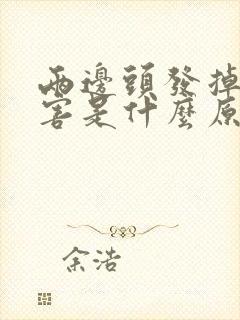 兩邊頭發掉
害是什麼原
余浩